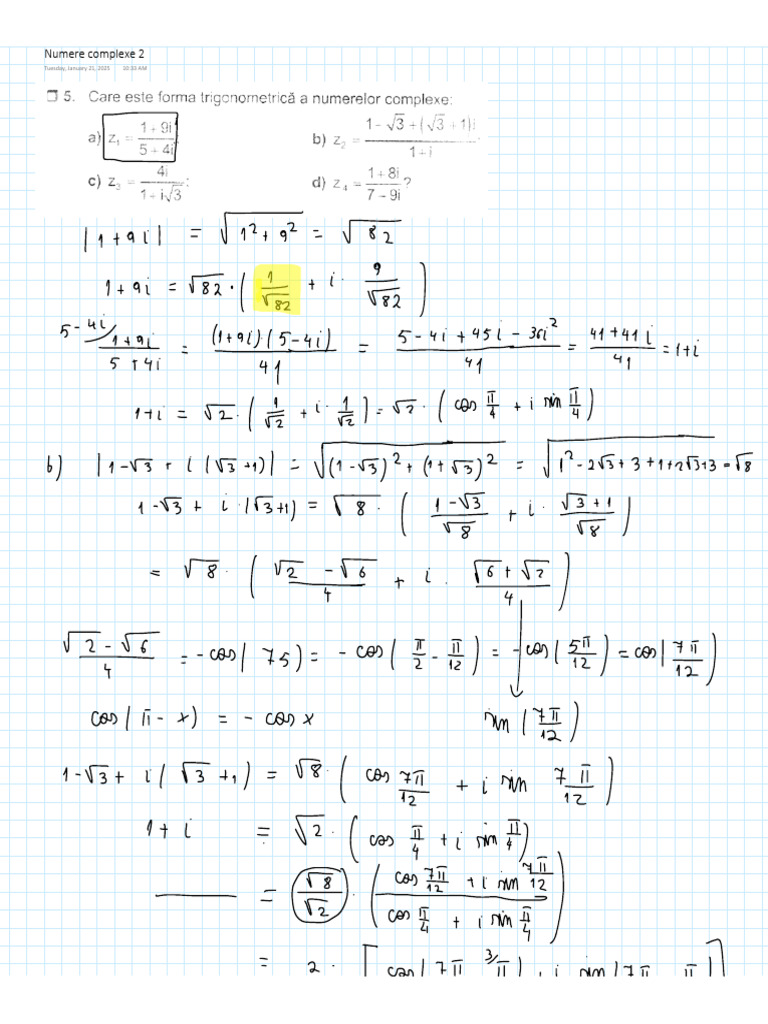 Numere complexe 2
Tuesday, January 21, 2025 10:33 AM
❒ 5. Care este forma trigonometrică a numerelor complexe:
a) z₁ = (1 + 9i)/(5 + 4i) b) z₂ = (1 − √3 + (√3 + 1)i)/(1 + i)
c) z₃ = 4i/(1 + i√3); d) z₄ = (1 + 8i)/(7 − 9i)?
|1 + 9i| = √(1² + 9²) = √82
1 + 9i = √82 · (1/√82 + i · 9/√82)
5 − 4i) (1 + 9i)/(5 + 4i) = (1 + 9i)·(5 − 4i)/41 = (5 − 4i + 45i − 36i²)/41 = (41 + 41i)/41 = 1 + i
1 + i = √2 · (1/√2 + i · 1/√2) = √2 · (cos π/4 + i sin π/4)
b) |1 − √3 + i(√3 + 1)| = √((1 − √3)² + (1 + √3)²) = √(1² − 2√3 + 3 + 1 + 2√3 + 3) = √8
1 − √3 + i · (√3 + 1) = √8 · ((1 − √3)/√8 + i · (√3 + 1)/√8)
= √8 · ((√2 − √6)/4 + i · (√6 + √2)/4)
(√2 − √6)/4 = − cos(75) = − cos(π/2 − π/12) = − cos(5π/12) = cos(7π/12)
cos(π − x) = − cos x sin(7π/12)
1 − √3 + i(√3 + 1) = √8 · (cos 7π/12 + i sin 7π/12)
1 + i = √2 · (cos π/4 + i sin π/4)
= √8/√2 · (cos 7π/12 + i sin 7π/12)/(cos π/4 + i sin π/4)
= 2 · [cos(7π 3/π) + i sin(7π π)]